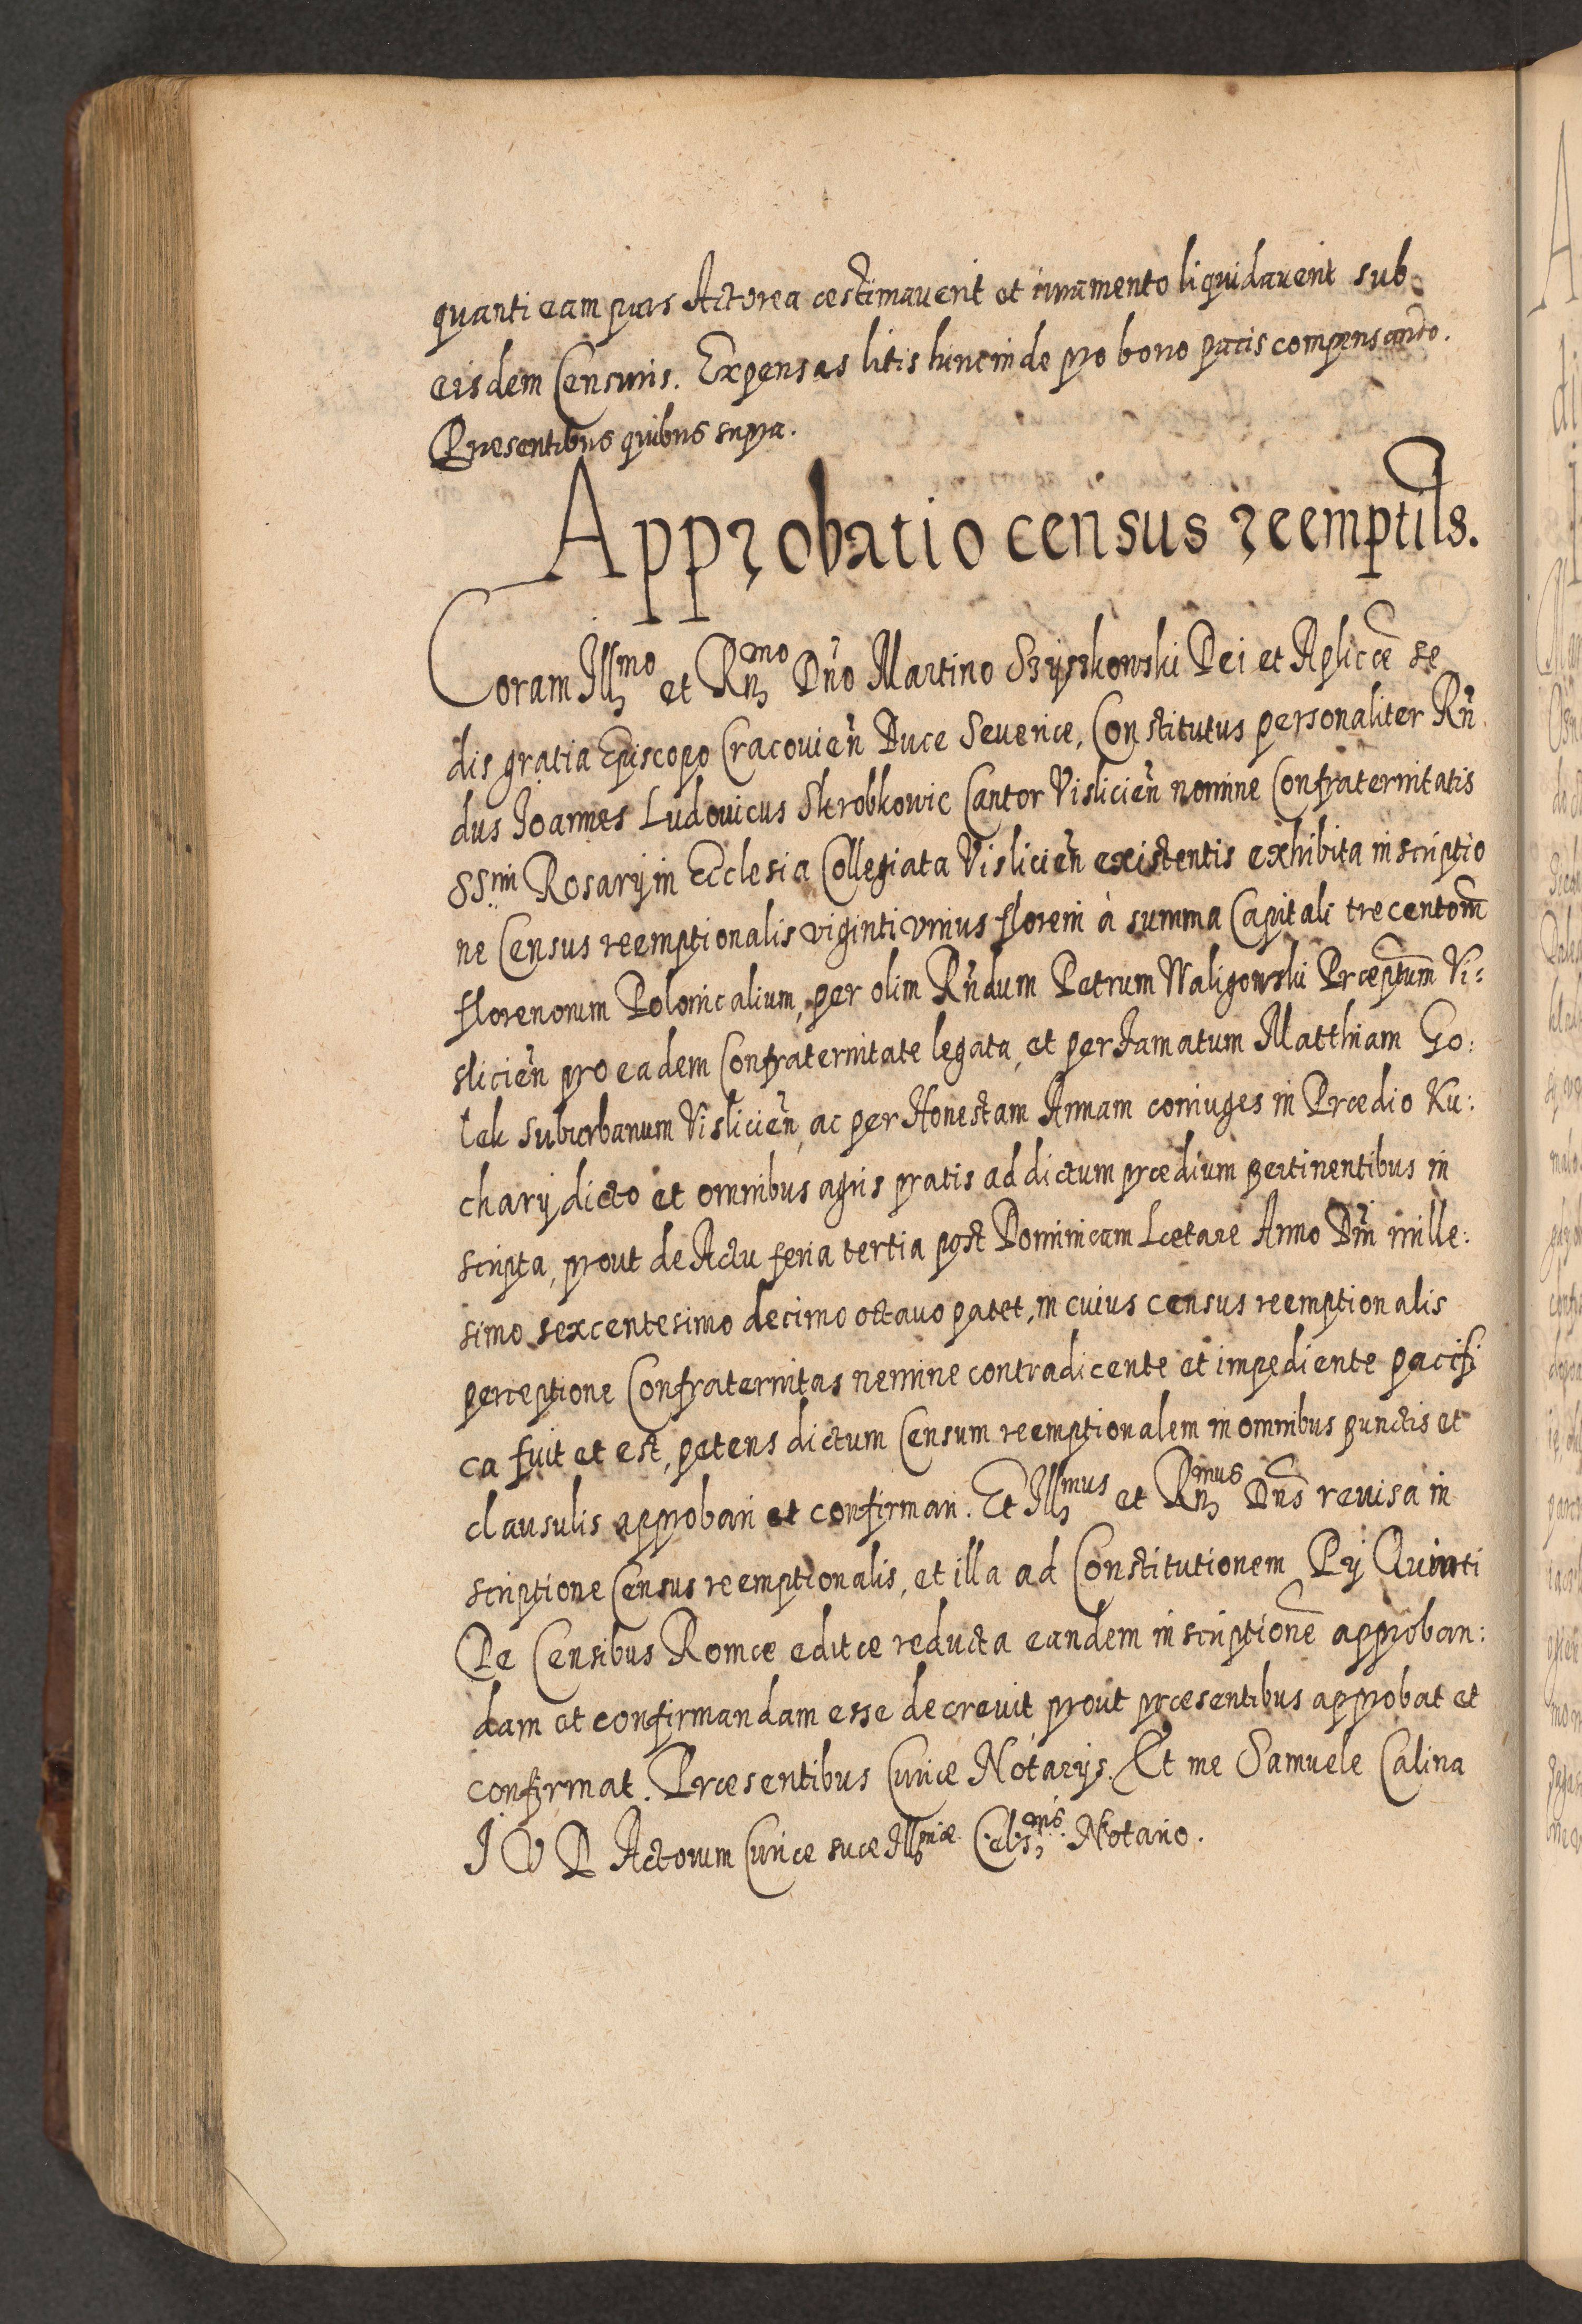 quanti eam pars Actorea æstimaverit et iuramento liquidaverit sub
eisdem Censuris. Expensas litis hincinde pro bono pacis compensando.
Præsentibus quibus supra.
Approbatio census reemptils.
Coram Illmo et Rnmo Dño Martino Szyszkowski Dei et Aplicæ se
dis gratia Episcopo Cracovień Duce Severiæ, Constitutus personaliter Rñ
dus Joannes Ludovicus Skrobkowic Cantor Vislicień nomine Confraternitatis
SSmi Rosarÿ in Ecclesia Collegiata Vislicień existentis exhibita inscriptio
ne Census reemptionalis viginti vnius floreni à summa Capitali trecentom̃
florenorum Polonicalium, per olim Rñdum Petrum Waligowski Præptum Vi:
slicień pro eadem Confraternitate legata, et per Famatum Matthiam Go:
lek suburbanum Vislicień, ac per Honestam Annam coniuges in Prædio Ku:
charÿ dicto et omnibus agris pratis ad dictum prædium pertinentibus in
scripta, prout de Actu feria tertia post Dominicam Lætare Anno Dñi mille:
simo sexcentesimo decimo octavo patet, in cuius census reemptionalis
perceptione Confraternitas nemine contradicente et impediente pacifi
ca fuit et est, petens dictum Censum reemptionalem in omnibus punctis et
clausulis approbari et confirmari. Et Illmus et Rnmus Dñs revisa in
scriptione Census reemptionalis, et illa ad Constitutionem Pÿ Quinti
De Censibus Romæ editæ reducta eandem inscriptionẽ approban:
dam et confirmandam esse decrevit prout præsentibus approbat et
confirmat. Præsentibus Curiæ Notarÿs. Et me Samuele Calina
J V D Actorum Curiæ suæ Illmæ Celsnis Notario.